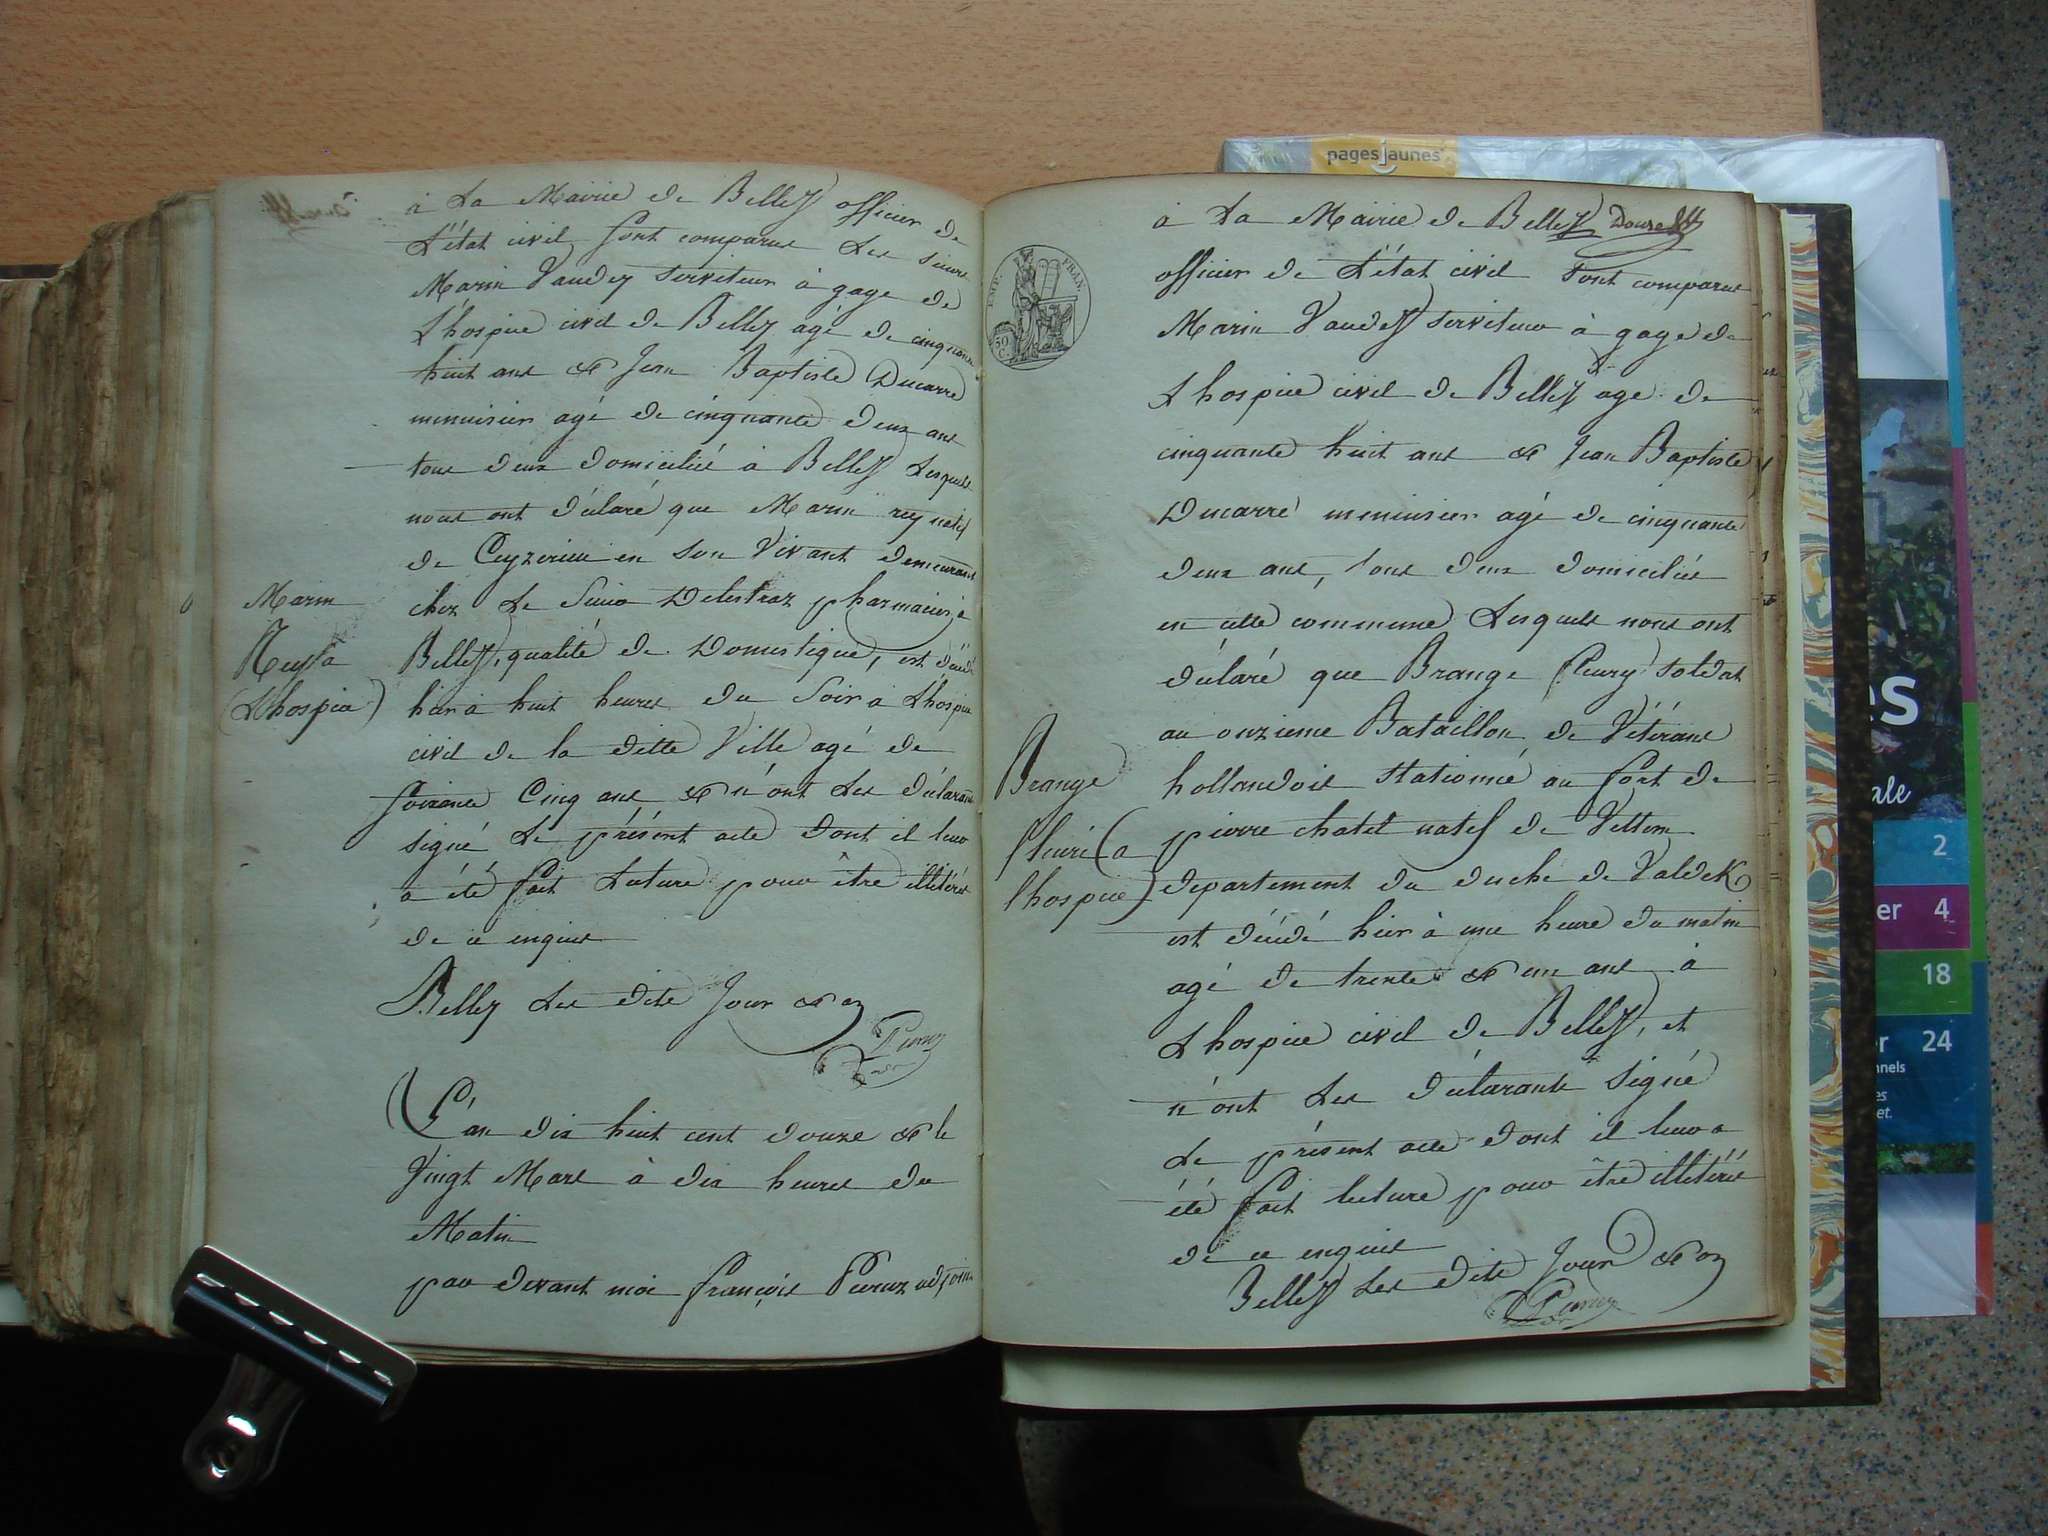 à La Mairie de Belley officier de
L'état civil sont comparus Les sieurs
Marin Vaudey serviteur à gage de
L'hospice civil de Belley agé de cinquante
huit ans & Jean Baptiste Ducarre
menuisier agé de cinquante deux ans
tous deux domiciliés à Belley Lesquels
nous ont déclaré que Marin rey natif
de Ceyzerieu en son Vivant demeurant
chez Le Sieur Delestraz pharmacien à
Belley, qualité de Domestique, est décédé
hier à huit heures du Soir à L'hospice
civil de la ditte Ville agé de
soixante Cinq ans & n'ont Les déclarants
signé Le présent acte dont il leur
a été fait Lecture pour être illitérés
de ce enquis
Belley Les dits Jour & an
Marin
(L'hospice)
L'an dix huit cent douze & le
Vingt Mars à dix heures du
Matin
par devant moi François Peruz adjoint
à La Mairie de Belley
EMP. FRAN.
50 C.
officier de L'état civil sont comparus
Marin Vaudey serviteur à gage de
L'hospice civil de Belley age de
cinquante huit ans & Jean Baptiste
Ducarre menuisier agé de cinquante
deux ans, tous deux domiciliés
en cette commune Lesquels nous ont
déclaré que Brange fleury soldat
au onzieme Bataillon de Vétérans
hollandois Stationné au fort de
pierre chatel natif de Vettem
departement du duché de Valdek
est décédé hier à une heure du matin
agé de trente & un ans à
L'hospice civil de Belley, et
n'ont Les déclarants signé
Le présent acte dont il leur a
été fait lecture pour être illitérés
de ce enquis
Belley Les dits Jour & an
Peruz
Brange
fleuri (a
l'hospice)
pagesjaunes
es
ale
2
er 4
18
er 24
nnels
es
et.